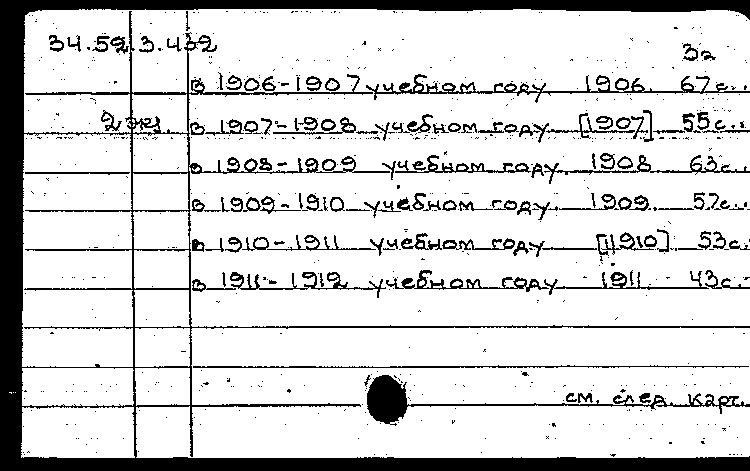 34.52.3.432
3а
в 1906-1907 учебном году 1906. 67с..
2 экз. в 1907-1908 учебном году. [1907] 55с..
в 1908-1909 учебном году. 1908 63с..
в 1909-1910 учебном году. 1909. 57с..
в 1910-1911 учебном году [1910] 53с.
в 1911-1912 учебном году 1911. 43с.
см. след. карт.